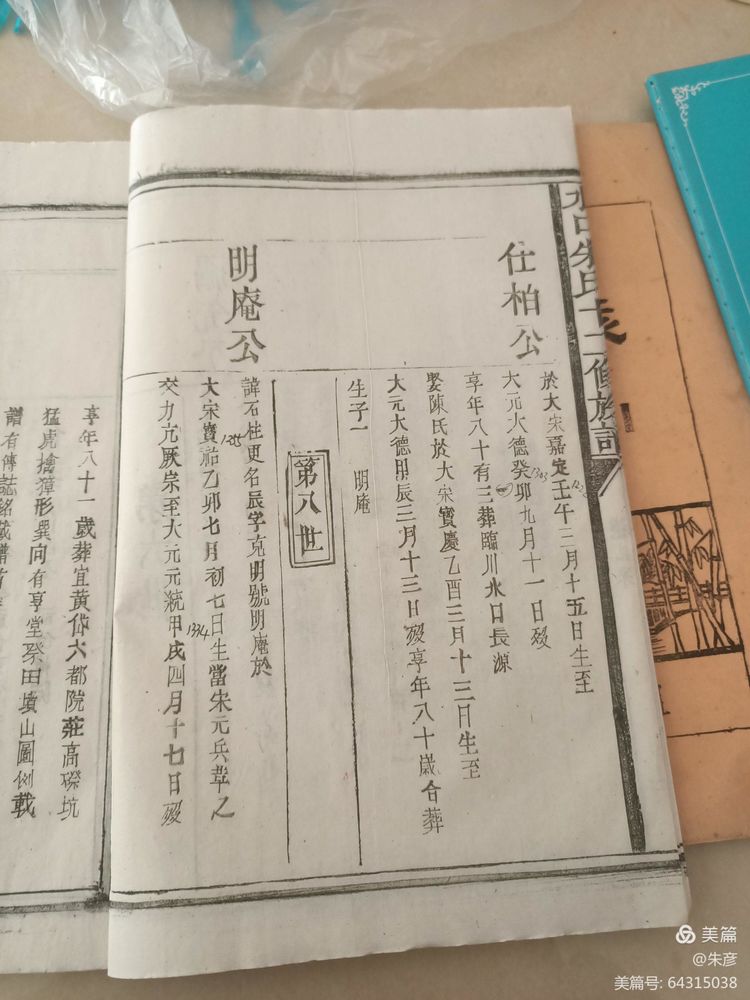 水口朱氏十二修族譜
仕柏公
於大宋嘉定壬午三月十五日生至
大元大德癸卯九月十一日殁
1303
享年八十有三葬臨川水口長源
娶陳氏於大宋寶慶乙酉三月十三日生至
大元大德甲辰三月十三日殁享年八十歲合葬
生子一 明庵
第八世
明庵公
諱石柱更名辰字克明號明庵於
大宋寳祐乙卯七月初七日生當宋元兵革之
1255
交力亢厥宗至大元元統甲戌四月十七日殁
1334
享年八十一歲葬宜黄岱六都院莊高磜坑
猛虎擒獐形巽向有享堂祭田墳山圖例載
譜有傳誌銘
美篇
@朱彦
美篇号: 64315038